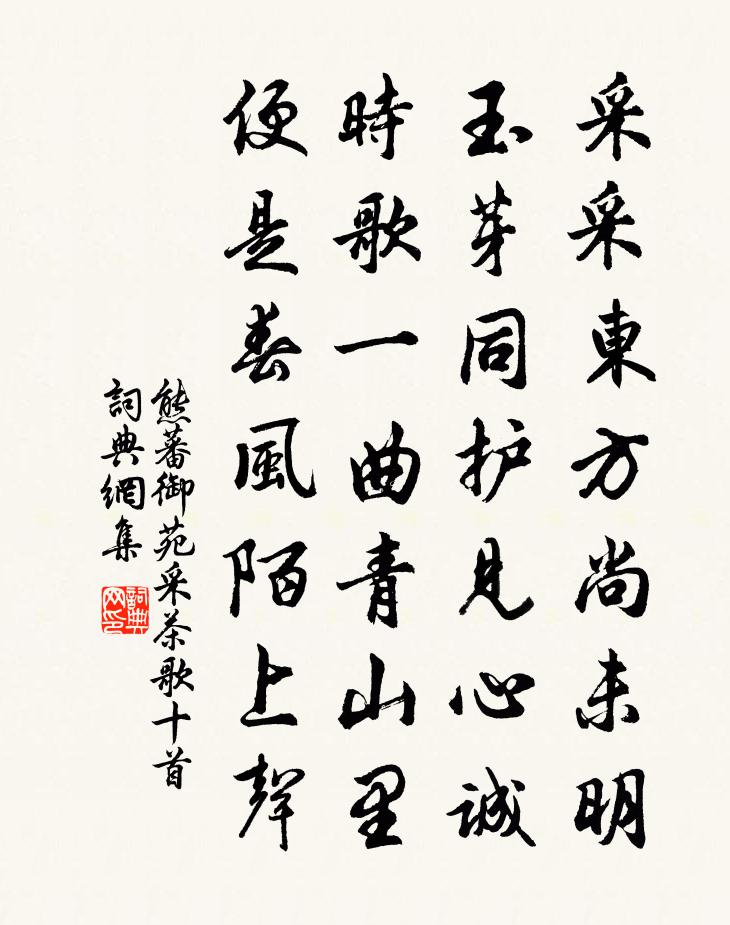 采采東方尚未明
玉芽同护見心誠
時歌一曲青山里
便是春風陌上聲
熊蕃御苑采茶歌十首
詞典網集
詞典網印